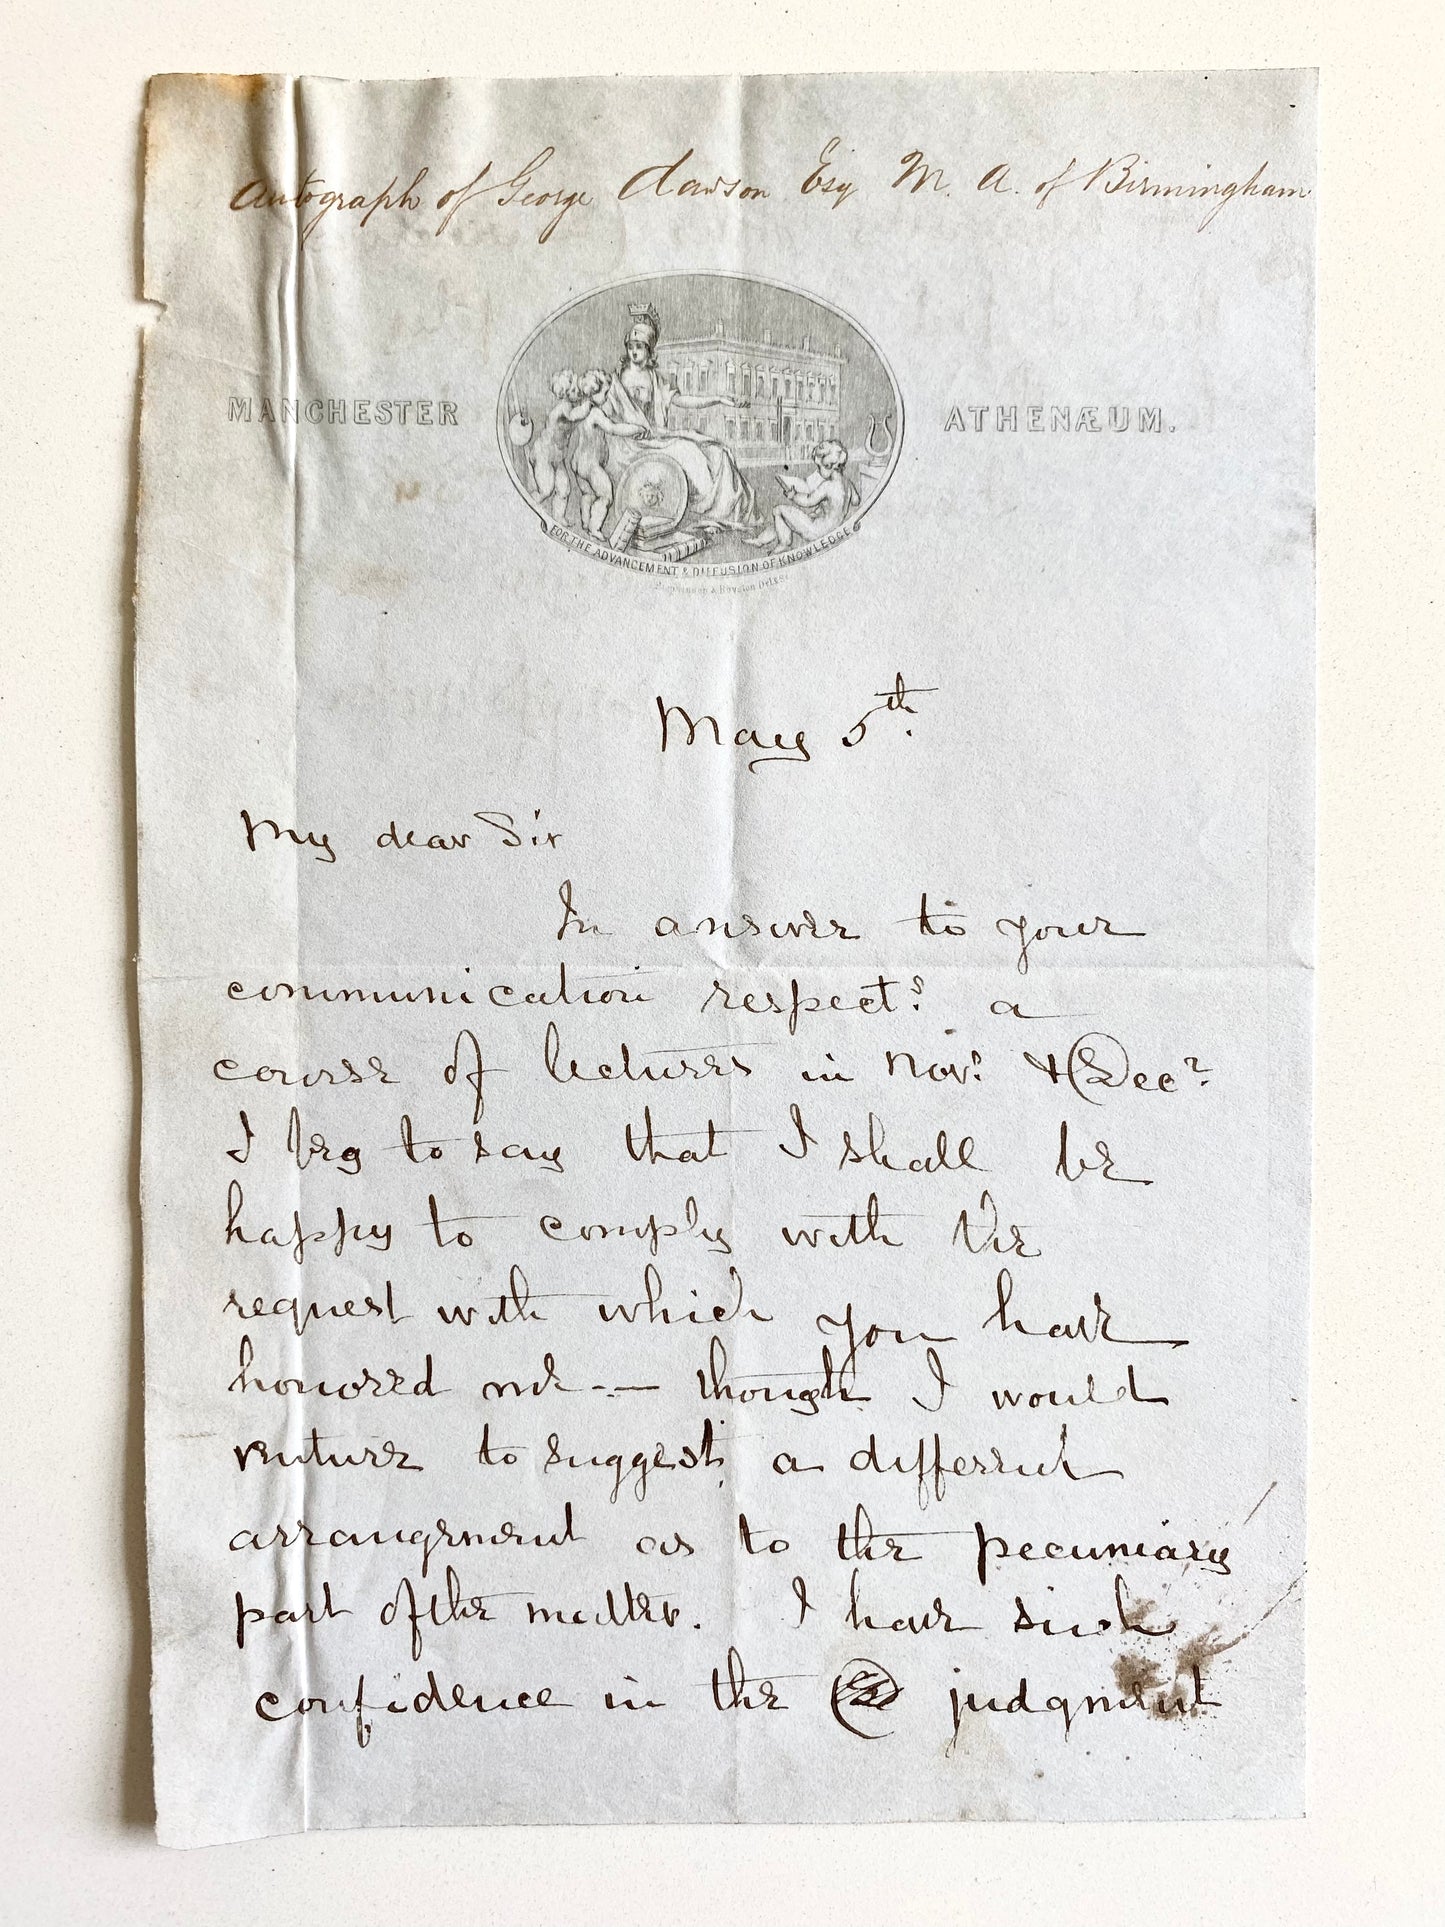 Autograph of George Dawson Esq M. A. of Birmingham
MANCHESTER ATHENÆUM.
FOR THE ADVANCEMENT & DIFFUSION OF KNOWLEDGE
May 5th.
My dear Sir
In answer to your
communication respectg. a
course of lectures in Novr. & Decr.
I beg to say that I shall be
happy to comply with the
request with which you have
honored me -- though I would
venture to suggest a different
arrangement as to the pecuniary
part of the matter. I have such
confidence in the judgment